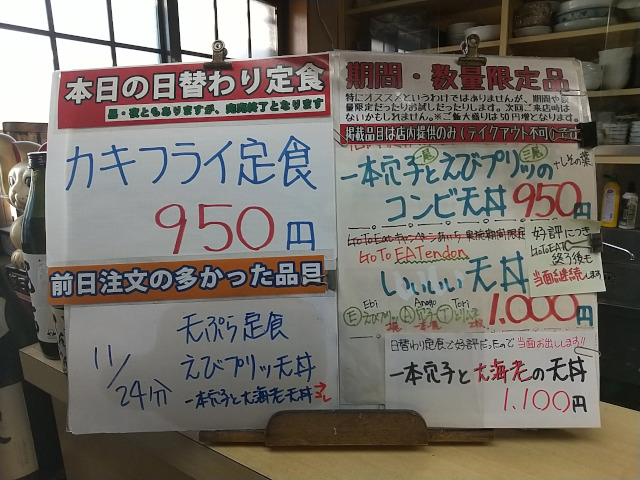 本日の日替わり定食
昼・夜ともありますが、完売終了となります
カキフライ定食
950円
前日注文の多かった品目
11/24分
天ぷら定食
えびプリッ天丼
一本穴子と大海老天丼
期間・数量限定品
特にオススメというわけではありませんが、期間や数
量限定だったりお試しだったりします。次回ご来店時は
ないかもしれません。※ご飯大盛りは50円増となります。
掲載品目は店内提供のみ(テイクアウト不可)です
一本穴子とえびプリッの
二尾
三尾
+しその葉
コンビ天丼 950円
GoToEATendon
いいい天丼
1.000円
Ebi
Anago
Tori
好評につき
GoToEAT
終了後も
当面継続します
日替わり定食で好評だったので当面お出しします!!
一本穴子と大海老の天丼
1.100円